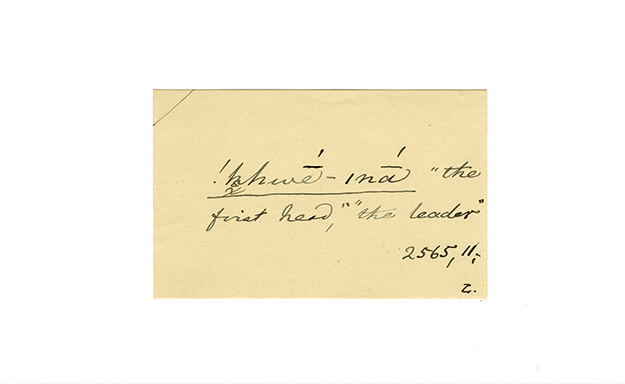 !k̲h̲wḗ-ınā́ "the
first head," "the leader"
2565, 11,
L.